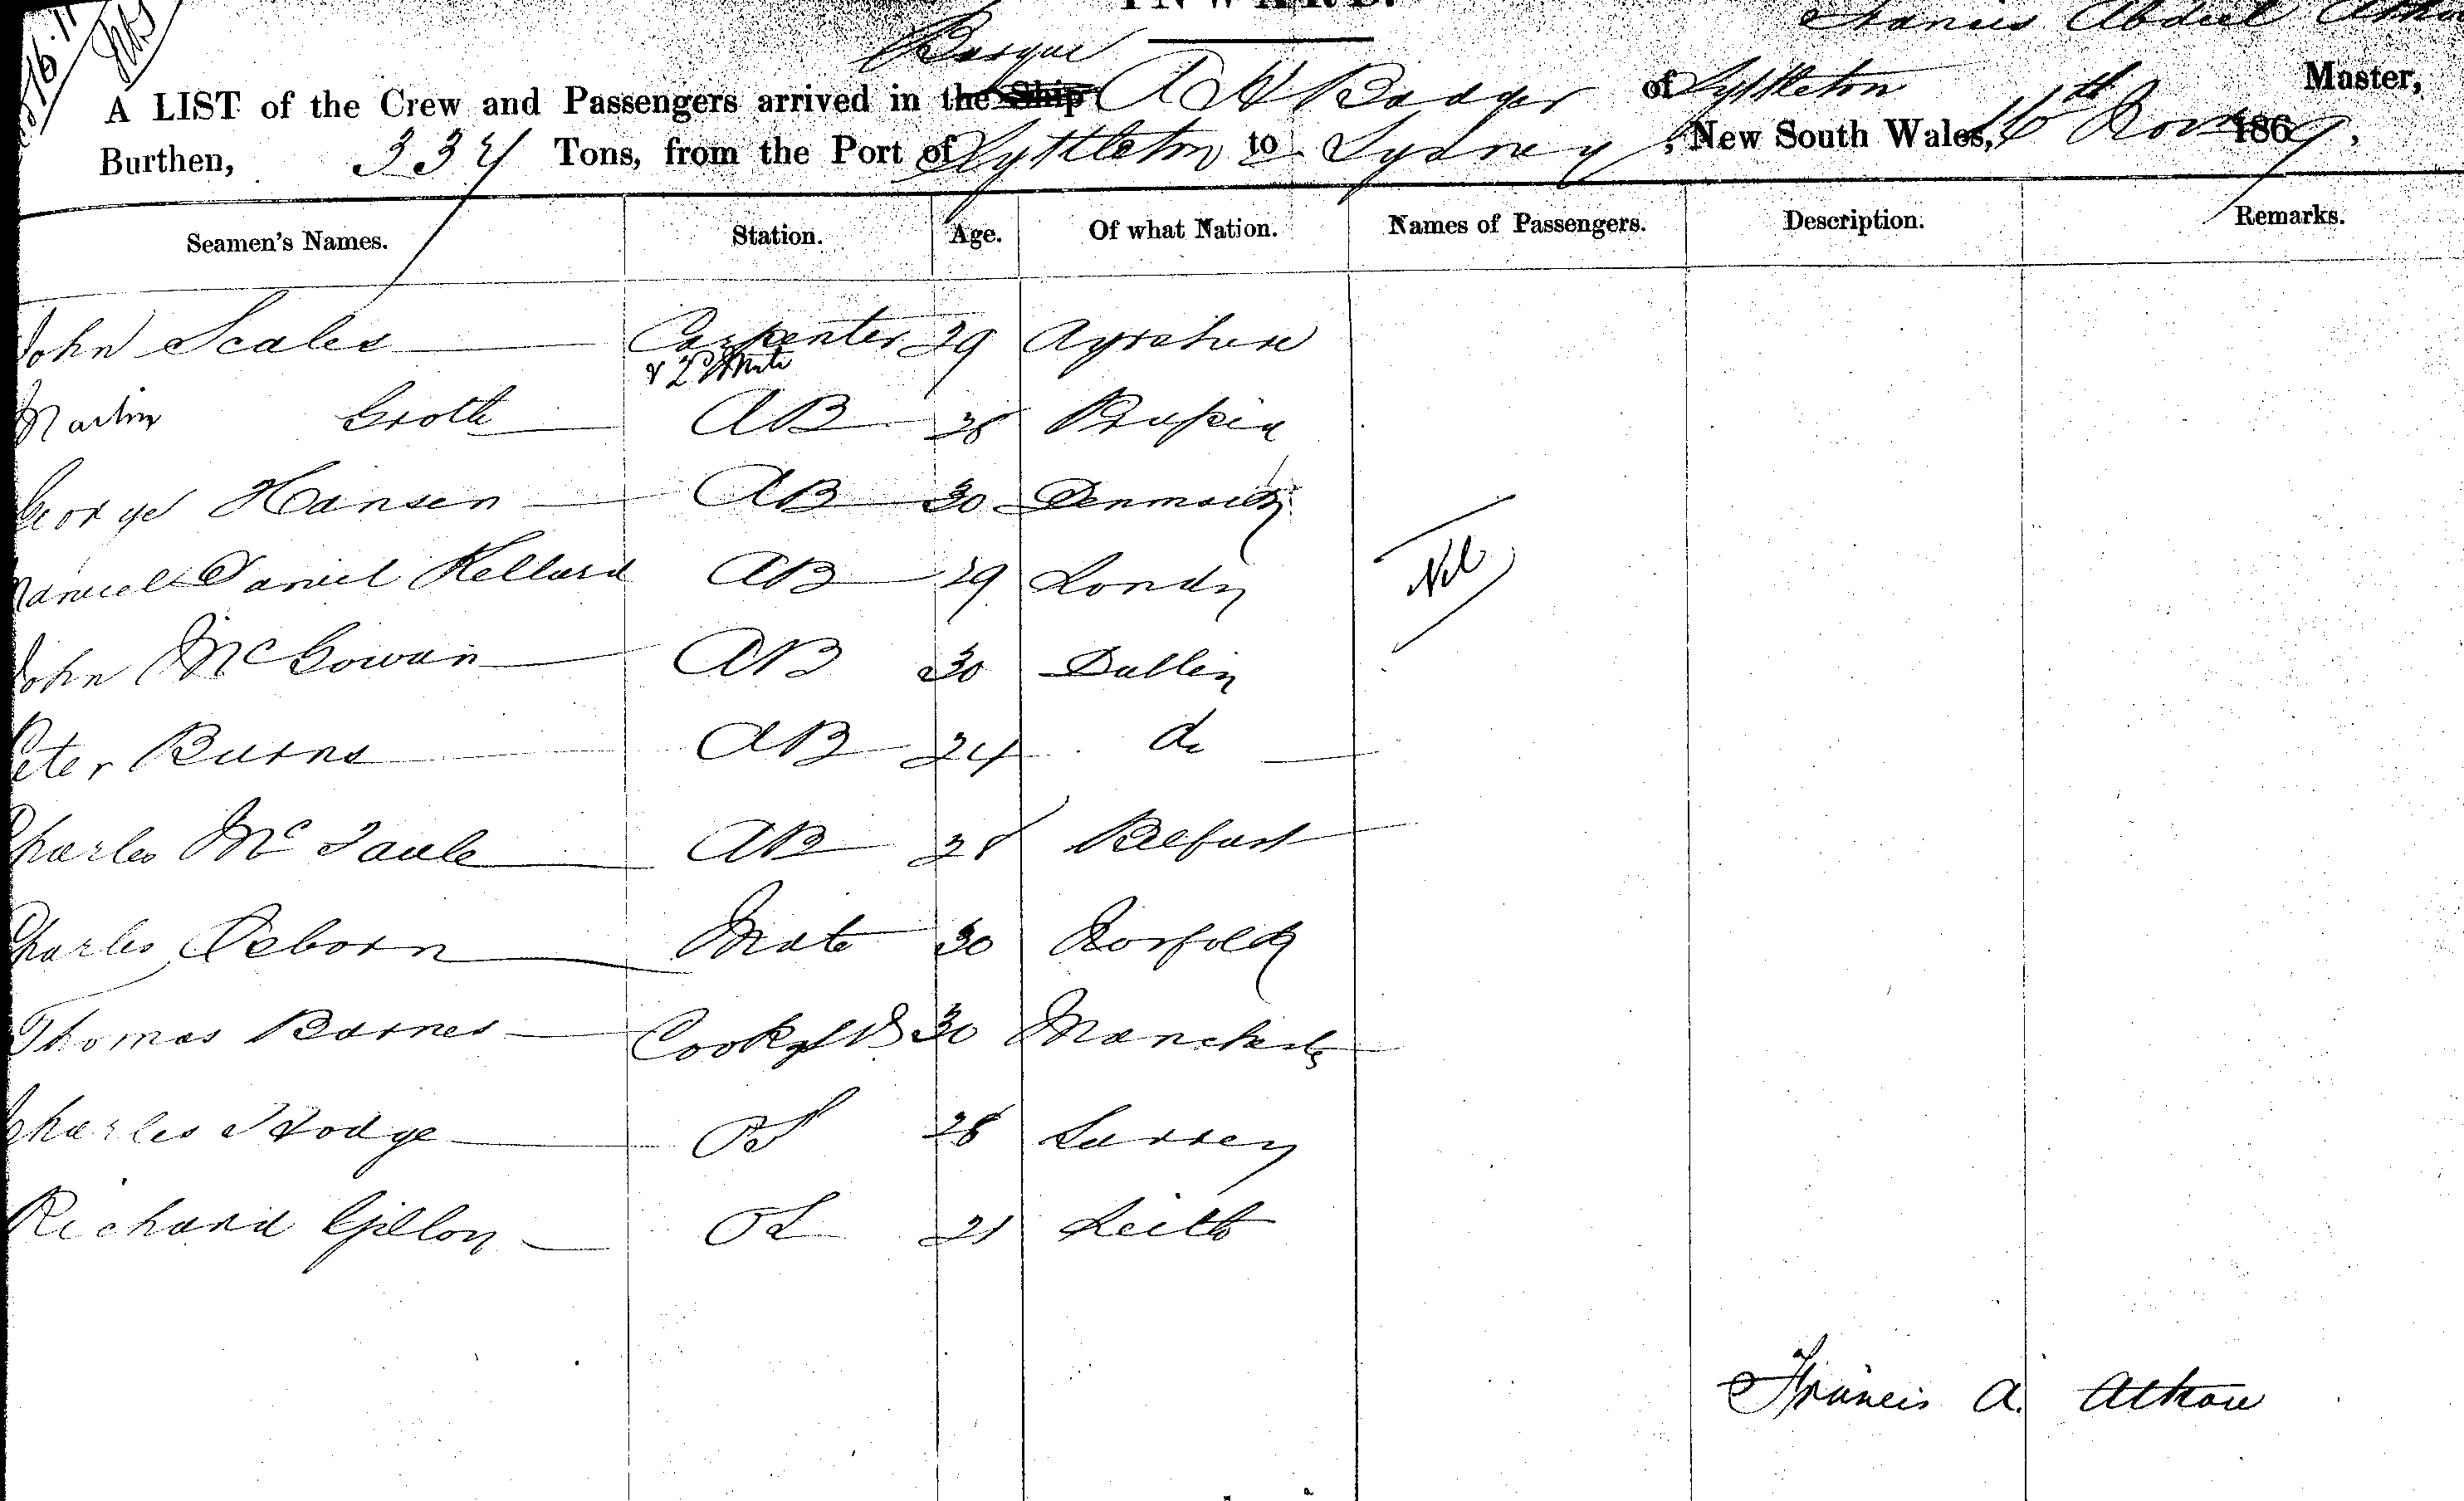 INWARD.
Barque
Francis Abdiel
A LIST of the Crew and Passengers arrived in the Ship A W Badger of Lyttleton Master,
Burthen, 334 Tons, from the Port of Lyttleton to Sydney, New South Wales, 16th Nov 1869,
Seamen's Names. Station. Age. Of what Nation. Names of Passengers. Description. Remarks.
John Scales Carpenter 29 Ayrshire
& 2nd Mate
Martin Groth AB 28 Prussia
George Hansen AB 30 Denmark
Daniel Kellard AB 29 London
Nil
John McGowan AB 30 Dublin
Peter Burns AB 24 do
Charles McFaule AB 28 Belfast
Charles Osborn Mate 30 Norfolk
Thomas Barnes Cook & S 30 Manchester
Charles Hodge OS 28 Surrey
Richard Gillon OS 21 Leith
Francis A.